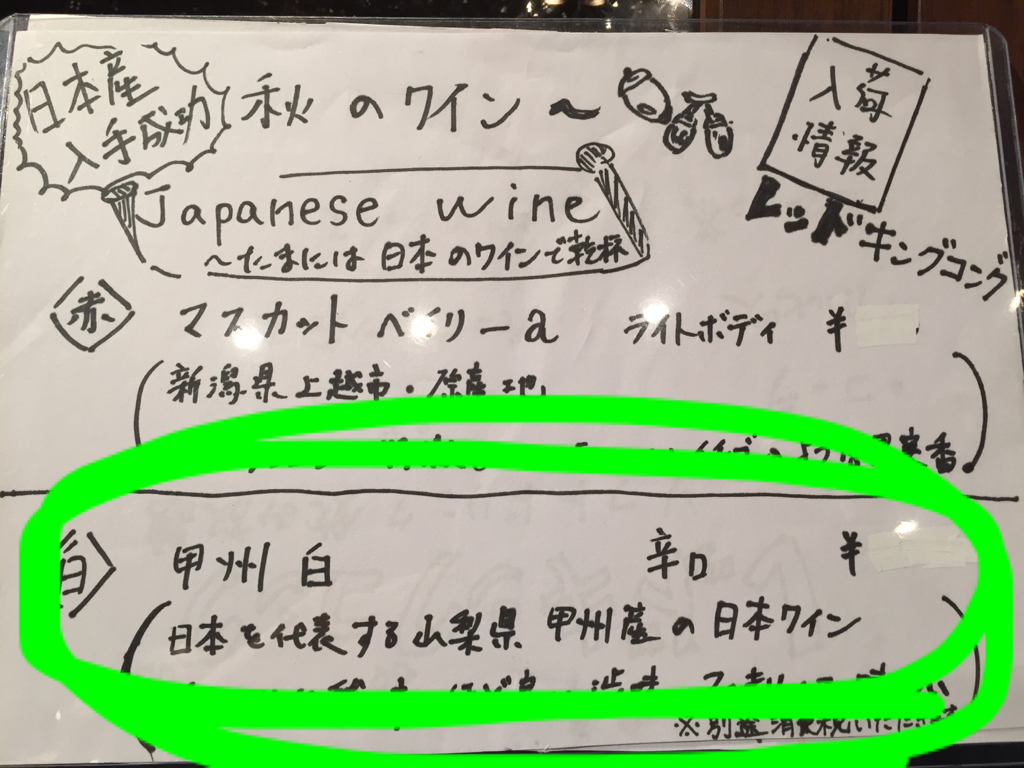 日本産
入手成功
秋のワイン〜
入荷
情報
レッドキングコング
Japanese wine
〜たまには日本のワインで乾杯
赤
マスカットベイリーa ライトボディ ¥
新潟県上越市・原産地
白
甲州 白 辛口 ¥
日本を代表する山梨県甲州産の日本ワイン
※別途消費税いただ